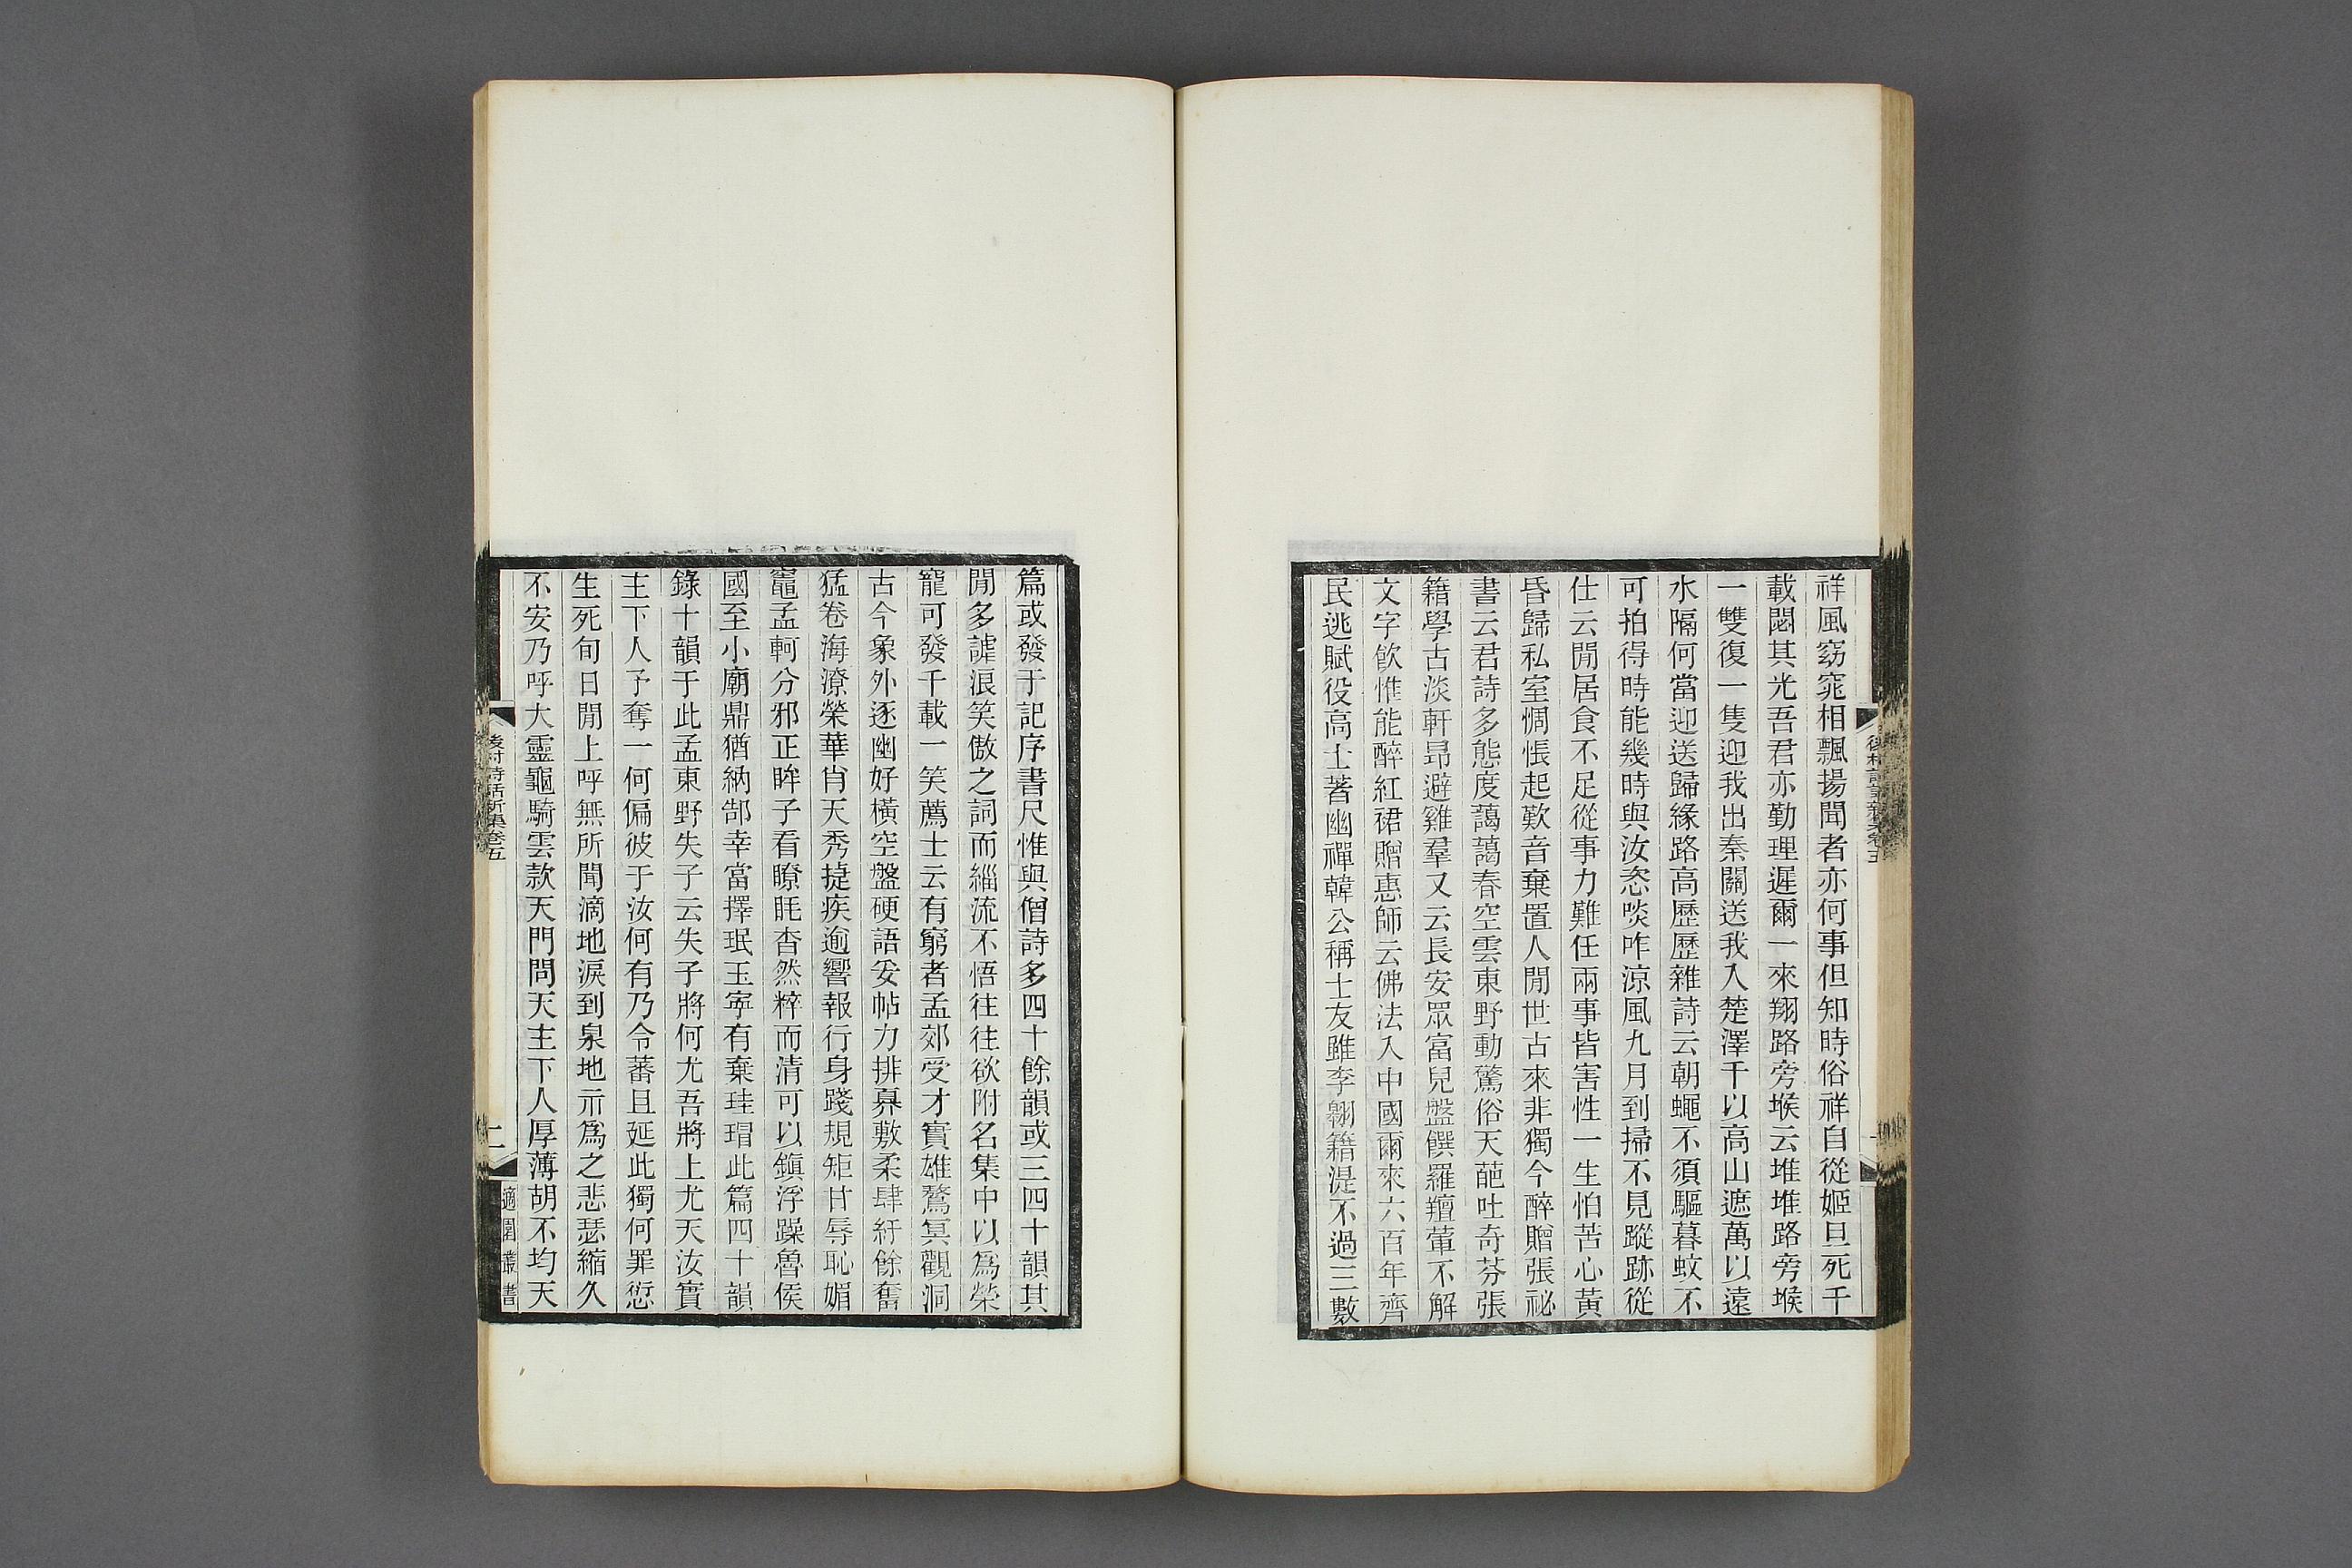 祥風窈窕相飄揚聞者亦何事但知時俗祥自從姬旦死千
載閟其光吾君亦勤理遲爾一來翔路旁堠云堆堆路旁堠
一雙復一隻迎我出秦關送我入楚澤千以高山遮萬以遠
水隔何當迎送歸緣路高歷歷雜詩云朝蠅不須驅暮蚊不
可拍得時能幾時與汝恣啖咋涼風九月到掃不見蹤跡從
仕云閒居食不足從事力難任兩事皆害性一生怕苦心黃
昏歸私室惆悵起歎音棄置人閒世古來非獨今醉贈張祕
書云君詩多態度藹藹春空雲東野動驚俗天葩吐奇芬張
籍學古淡軒昂避雞羣又云長安眾富兒盤饌羅羶葷不解
文字飲惟能醉紅裙贈惠師云佛法入中國爾來六百年齊
民逃賦役高士著幽禪韓公稱士友雖李翱籍湜不過三數
篇或發于記序書尺惟與僧詩多四十餘韻或三四十韻其
閒多謔浪笑傲之詞而緇流不悟往往欲附名集中以為榮
寵可發千載一笑薦士云有窮者孟郊受才實雄驁冥觀洞
古今象外逐幽好橫空盤硬語妥帖力排奡敷柔肆紆餘奮
猛卷海潦榮華肖天秀捷疾逾響報行身踐規矩甘辱恥媚
竈孟軻分邪正眸子看瞭眊杳然粹而清可以鎮浮躁魯侯
國至小廟鼎猶納郜幸當擇珉玉寧有棄珪瑁此篇四十韻
錄十韻于此孟東野失子云失子將何尤吾將上尤天汝實
主下人予奪一何偏彼于汝何有乃令蕃且延此獨何罪愆
生死旬日閒上呼無所聞滴地淚到泉地示為之悲瑟縮久
不安乃呼大靈龜騎雲款天門問天主下人厚薄胡不均天
後村詩話新集卷五
二
適園叢書